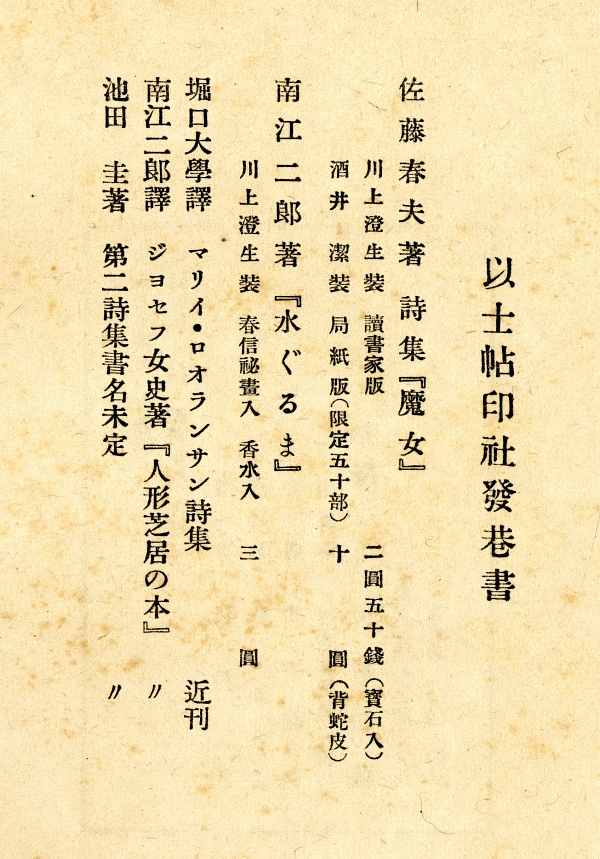 以士帖印社發巷書
佐藤春夫著 詩集『魔女』
川上澄生裝 讀書家版 二圓五十錢（寶石入）
酒井 潔裝 局紙版（限定五十部） 十 圓（背蛇皮）
南江二郎著『水ぐるま』
川上澄生裝 春信祕畫入 香水入 三 圓
堀口大學譯 マリイ・ロオランサン詩集 近刊
南江二郎譯 ジョセフ女史著『人形芝居の本』 〃
池田 圭著 第二詩集書名未定 〃